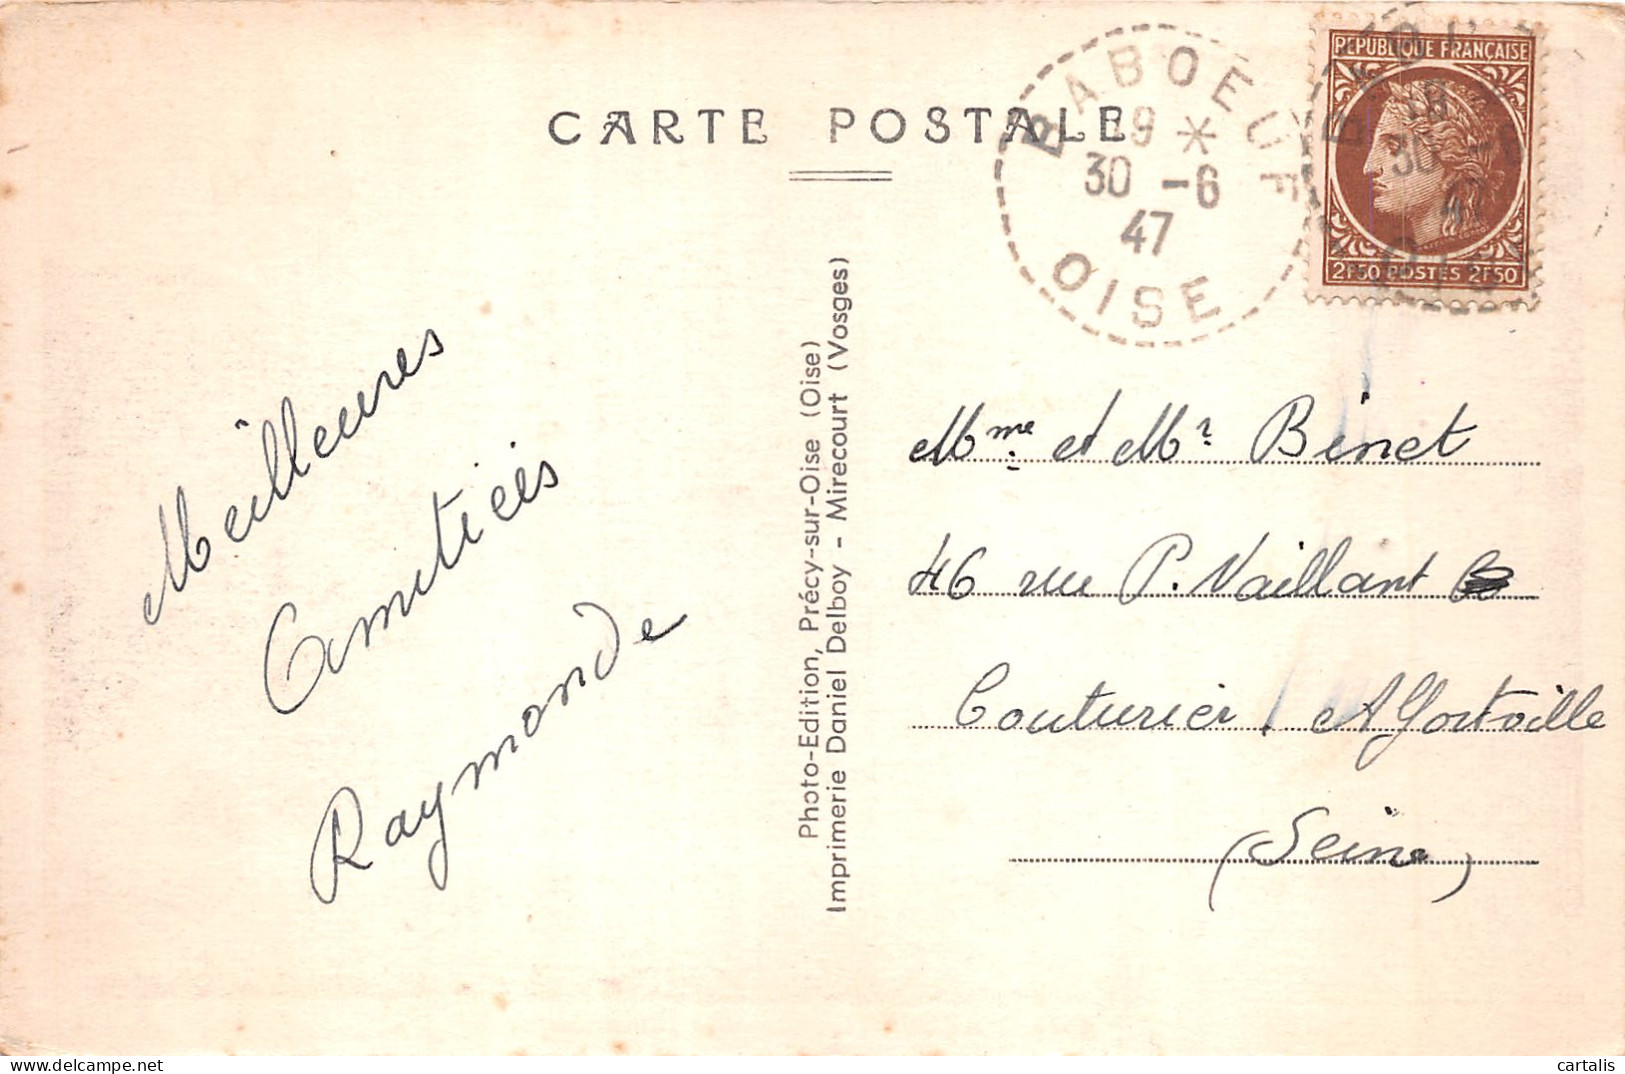 CARTE POSTALE
BABOEUF
19 *
30 -6
47
OISE
REPUBLIQUE FRANÇAISE
2F50 POSTES 2F50
Meilleures
Amitiés
Raymonde
Photo-Edition, Précy-sur-Oise (Oise)
Imprimerie Daniel Delboy - Mirecourt (Vosges)
Mme et Mr Binet
46 rue P. Vaillant
Couturier Alfortville
(Seine)
cartalis